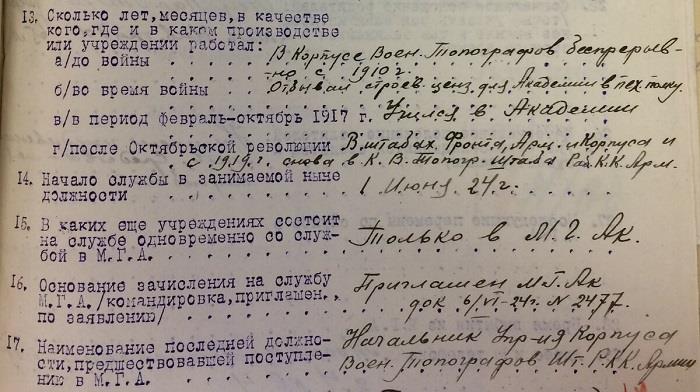 13. Сколько лет, месяцев, в качестве
кого, где и в каком производстве
или учреждении работал:
а/до войны В Корпусе Воен. Топографов беспрерыв-
но с 1910 г.
б/во время войны Отбывал строев. ценз для Академии в пех. полку.
в/в период февраль-октябрь 1917 г. Учился в Академии
г/после Октябрьской революции В штабах Фронта, Арм. и Корпуса и
с 1919 г. снова в К. В. Топогр. Штаба Раб. К. К. Арм.
14. Начало службы в занимаемой ныне
должности 1 Июня 24 г.
15. В каких еще учреждениях состоит
на службе одновременно со служ-
бой в М.Г.А. Только в М. Г. Ак.
16. Основание зачисления на службу
М.Г.А. /командировка, приглашен.,
по заявлению/ Приглашен М.Г. Ак
док 6/VI-24 г. N 2477.
17. Наименование последней должно-
сти, предшествовавшей поступле-
нию в М.Г.А. Начальник Упр-ия Корпуса
Воен. Топографов Шт. Р.К.К. Армии